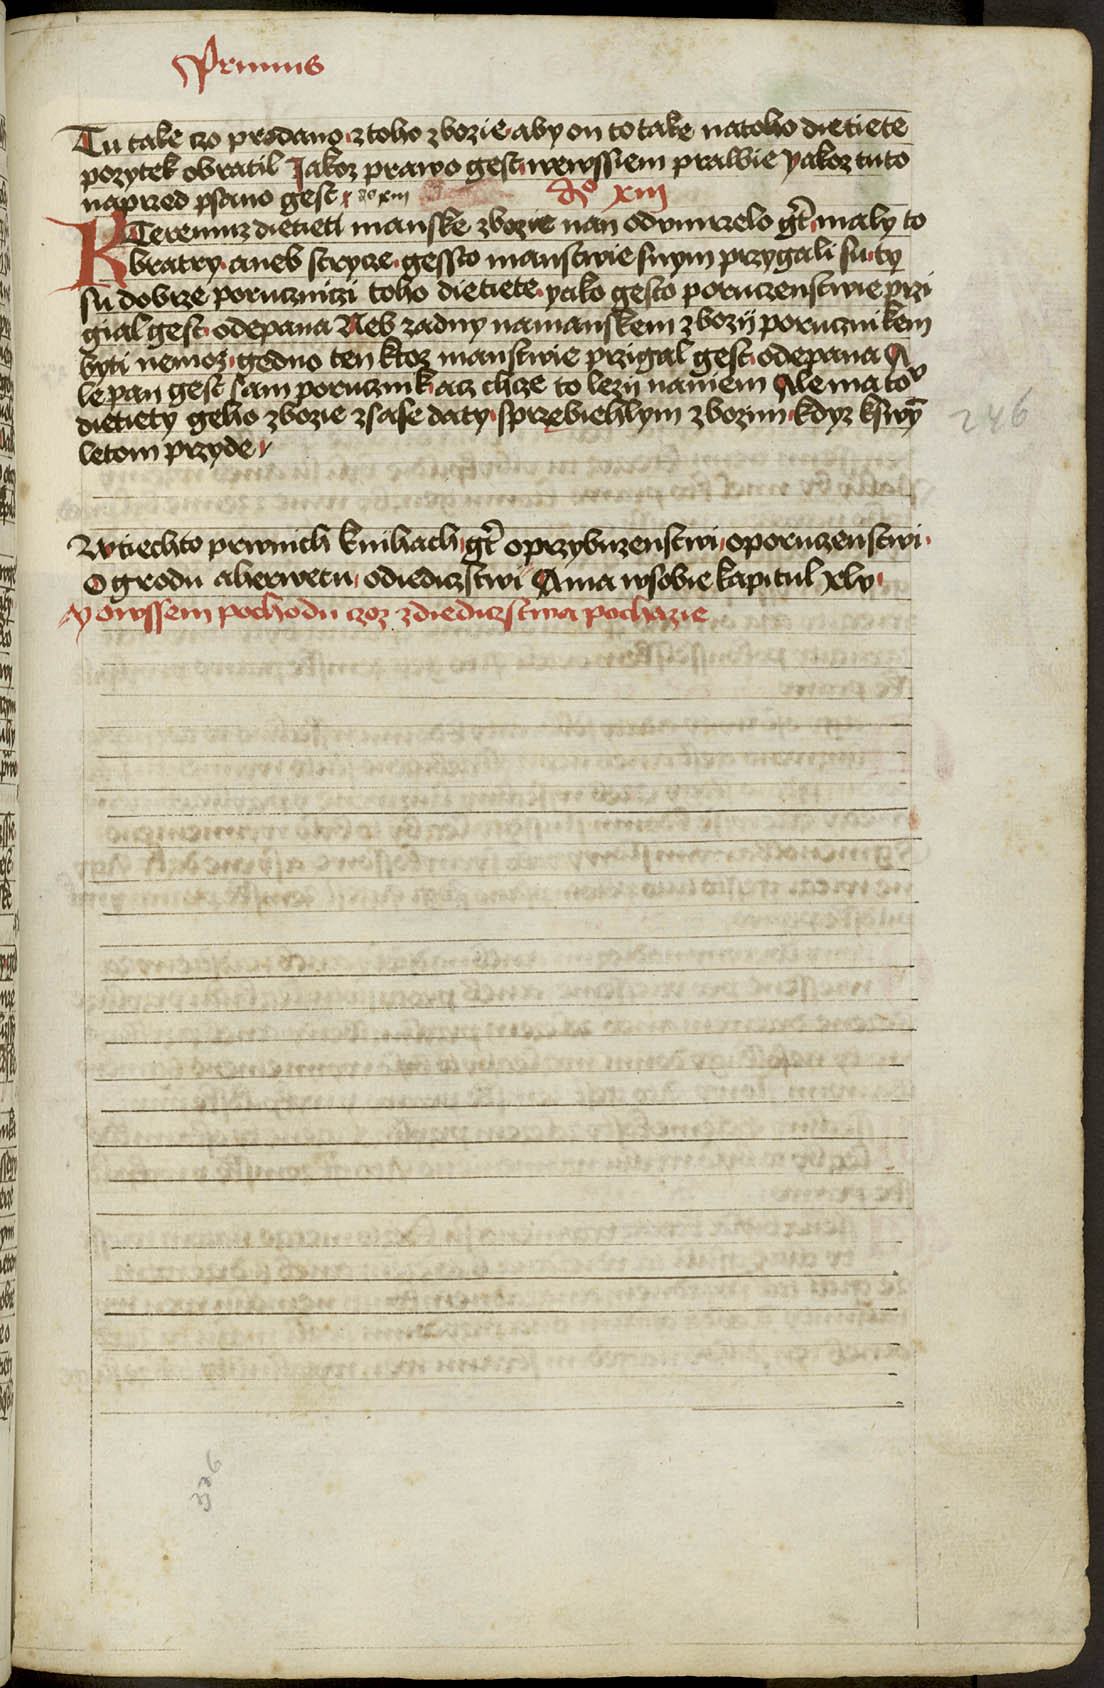 Primus
Tu take czo prodano z toho zbozie aby on to take na toho dietiete
pozytek obratil Jakoz prawo gest wewssiem pralbie yakoz tuto
naprzed psano gest xiij
Ao xiij
KTeremuz dietieti manske zbozie nan odumrzelo gt maly to
bratry aneb stryce gessto manstwie swym przygali su ty
su dobrze poruczniczi toho dietiete yako gesto poruczenstwie przi
gial gest odepana Neb zadny namanskem zbozij porucznikem
byti nemoz gedno ten ktoz manstwie przigal gest odepana A
le pan gest sam porucznik acz chcze to lezij naniem Ale ma to
dietiety geho zbozie zsase daty sprzebiehlym zbozim kdyz kswy
letom przyde
246
Wtiechto prwnich knihach gt oprzybuzenstwi oporuczenstwi
Ogrodu aherwetu odiediczstwi A ma wsobie kapitul xlv
Y owssem pochodu czoz zdiediczstwa pochazie
336